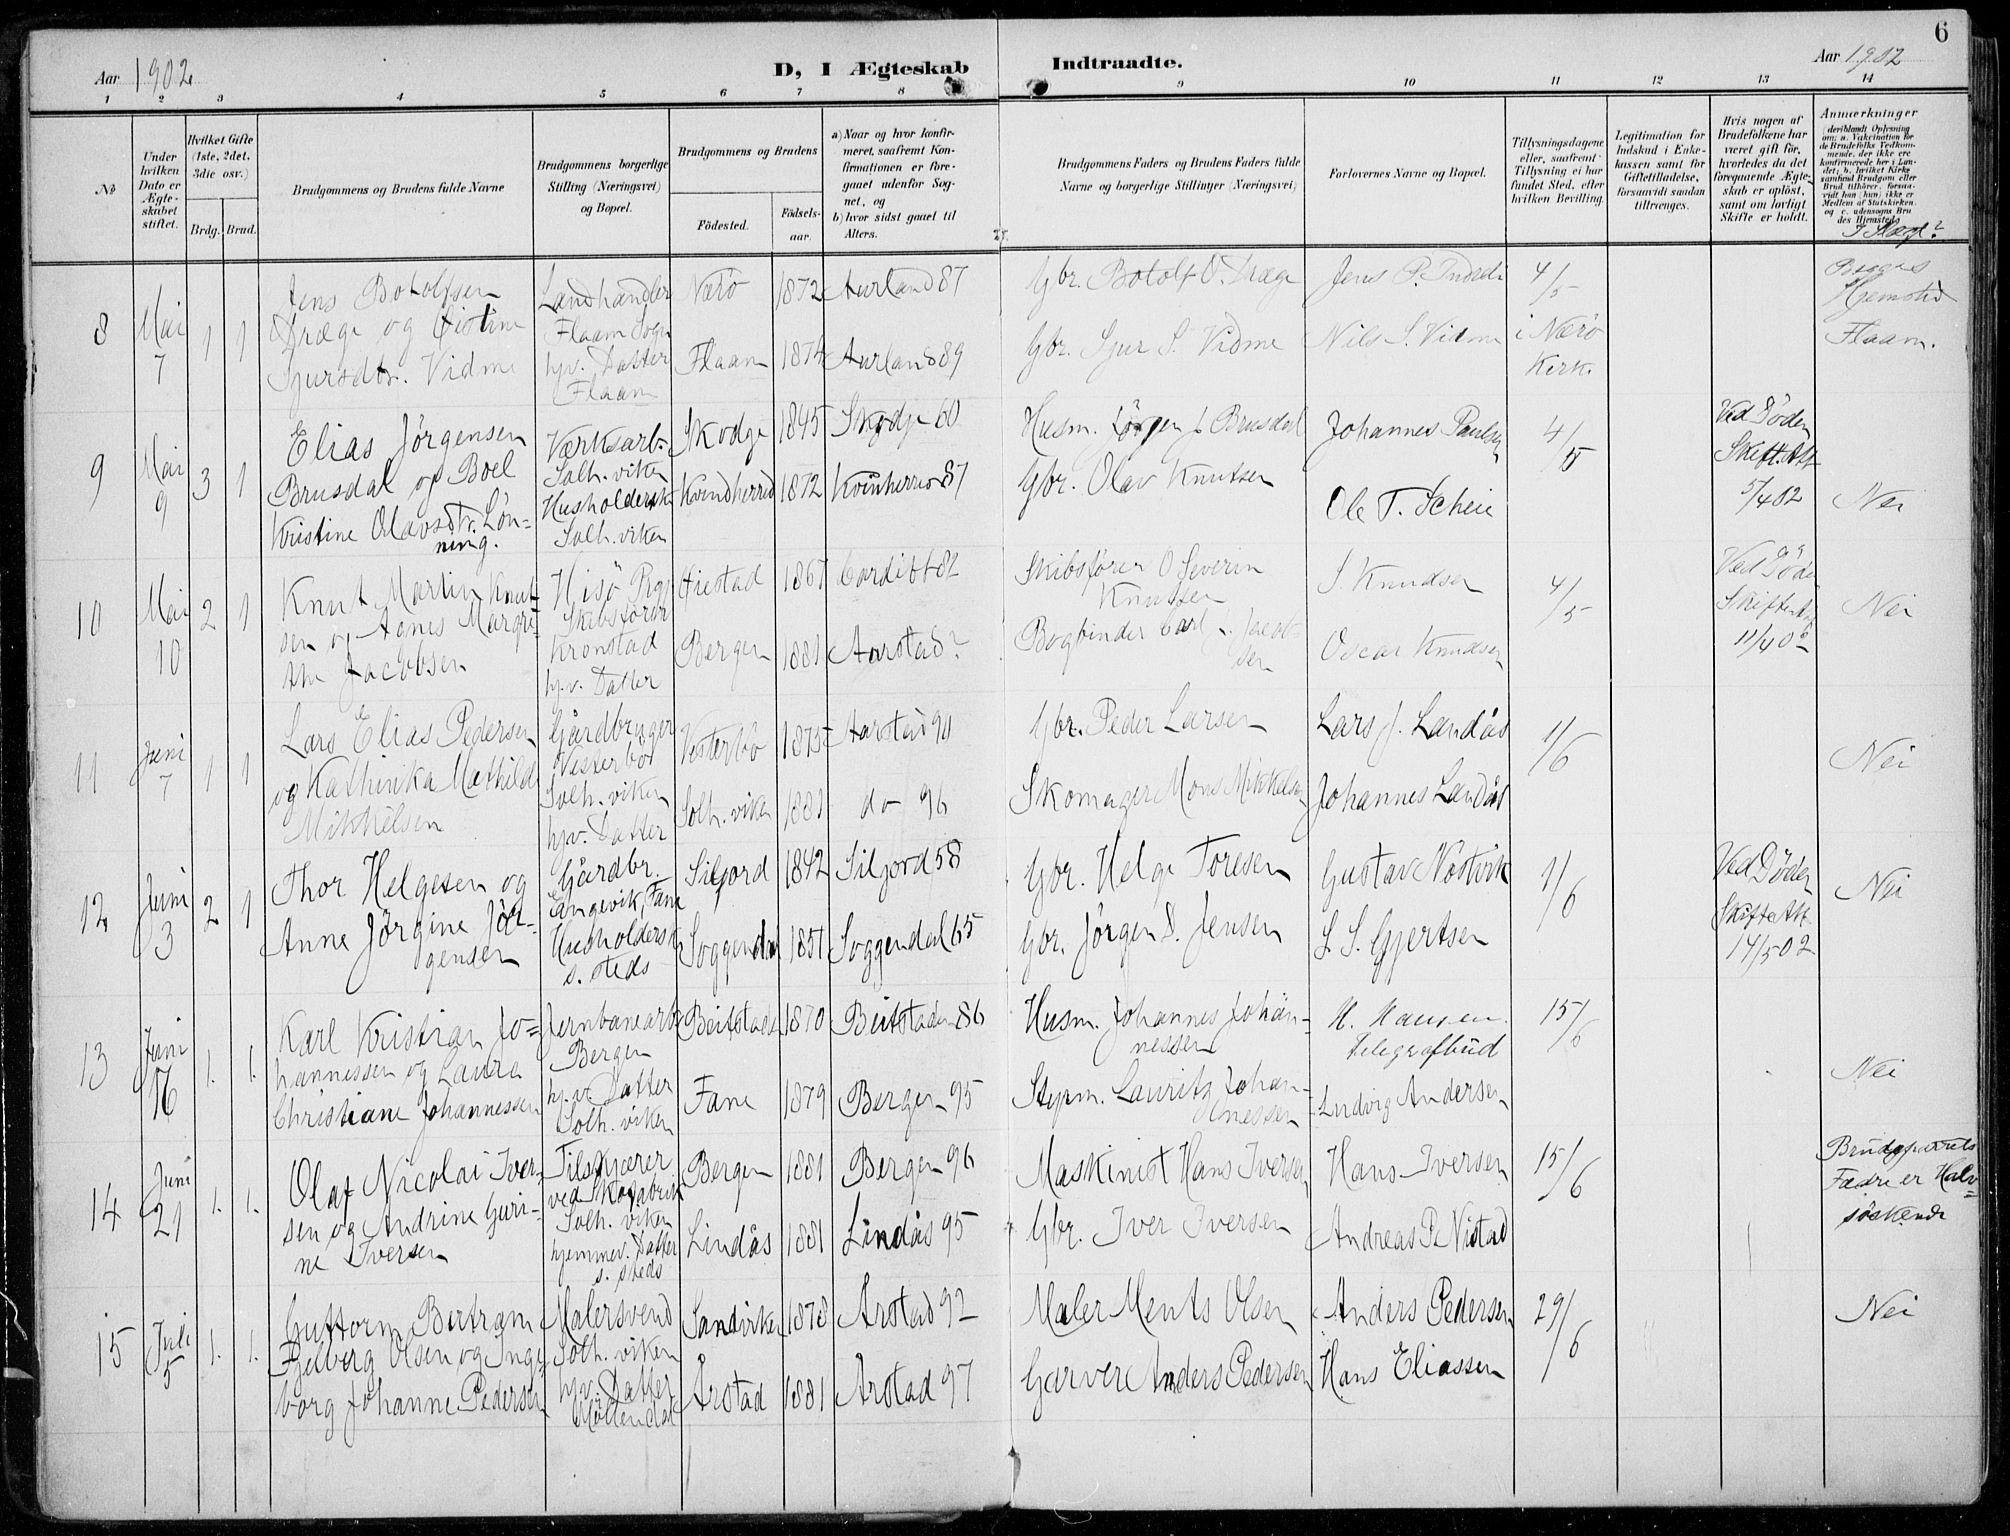 6
Aar 1902
D, I Ægteskab Indtraadte.
Aar 1902
1 2 3 4 5 6 7 8 9 10 11 12 13 14
No
Under hvilken Dato er Ægteskabet stiftet.
Hvilket Gifte (1ste, 2det, 3die osv.)
Brdg. Brud.
Brudgommens og Brudens fulde Navne
Brudgommens borgerlige Stilling (Næringsvei) og Bopæl.
Brudgommens og Brudens
Födested. Födselsaar.
a) Naar og hvor konfirmeret, saafremt Konfirmationen er foregaaet udenfor Sognet, og
b) hvor sidst gaaet til Alters.
Brudgommens Faders og Brudens Faders fulde Navne og borgerlige Stillinger (Næringsvei)
Forlovernes Navne og Bopæl.
Tillysningsdagene eller, saafremt Tillysning ei har fundet Sted, efter hvilken Bevilling.
Legitimation for Indskud i Enkekassen samt for Giftetilladelse, forsaavidt saadan tiltrænges.
Hvis nogen af Brudefolkene har været gift för, hvorledes da det foregaaende Ægteskab er oplöst, samt om lovligt Skifte er holdt.
Anmærkninger
I Slægt?
8 Mai 7 1 1
Jens Botolfsen
Dræge og Øistine
Sjursdtr. Vidme
Landhandler
Flaam Sogn
hjv. Datter
Flaam
Nærö 1872 Aurland 87
Flaam 1874 Aurland 89
Gbr. Botolf O. Dræge
Gbr. Sjur S. Vidme
Jens P. Indreli
Nils S. Vidme
4/5
i Nærö
Kirk.
Begges
Hjemsted
Flaam.
9 Mai 9 3 1
Elias Jörgensen
Brusdal og Boel
Kristine Olavsdtr. Lön=
ning.
Værksarb.
Solh.viken
Husholderske
Solh.viken
Skodje 1845 Skodje 60
Kvindherred 1872 Kvinherred 87
Husm. Jörgen J. Brusdal
Gbr. Olav Knutsen
Johannes Paulsen
Ole T. Scheie
4/5
Ved Döden
Skift. Att
5/4 02
Nei
10 Mai 10 2 1
Knut Martin Knut-
sen og Agnes Margre-
the Jacobsen
Hisö Prg
Skibsförer
Kronstad
hjv. Datter
Öiestad 1867 Cardiff 82
Bergen 1881 Aarstad?
Skibsförer O Severin
Knutsen
Bogbinder Carl Jacob-
sen
S. Knudsen
Oscar Knudsen
4/5
Ved Döden
Skifte Att
11/4 02
Nei
11 Juni 7 1 1
Lars Elias Pedersen
og Kathinka Mathilde
Mikkelsen
Gårdbruger
Vesterbö
Solh.viken
hjv. Datter
Vesterbö 1875 Aarstad 90
Solh.viken 1881 do 96
Gbr. Peder Larsen
Skomager Mons Mikkelsen
Lars J. Landås
Johannes Landås
1/6
Nei
12 Juni 3 2 1
Thor Helgesen og
Anne Jörgine Jör-
gensen
Gårdbr.
Langevik, Fane
Husholdersk
s. steds
Siljord 1842 Siljord 58
Soggendal 1851 Soggendal 65
Gbr. Helge Toresen
Gbr. Jörgen S. Jensen
Gustav Nöstvik
S. S. Gjertsen
1/6
Ved Döden
Skifte Att
14/5 02
Nei
13 Juni 16 1. 1.
Karl Kristian Jo=
hannessen og Laura
Christiane Johannessen
Jernbanearb
Bergen
hjv. Datter
Solh.viken
Beitstaden 1870 Beitstaden 86
Fane 1879 Bergen 95
Husm. Johannes Johan-
nessen
Styrm. Lauritz Johan-
nessen
H. Hansen
telegrafbud
Ludvig Andersen
15/6
Nei
14 Juni 21 1. 1.
Olaf Nicolai Iver-
sen og Andrine Guri-
ne Iversen
Tilskjærer
ved Skofabrik
Solh. viken
hjemmev. Datter
s. steds
Bergen 1881 Bergen 96
Lindås 1881 Lindås 95
Maskinist Hans Iversen
Gbr. Iver Iversen
Hans Iversen
Andreas P. Nistad
15/6
Brudeparrets
Fædre er Halv=
söskende
15 Juli 5 1. 1.
Guttorm Bertram
Fjelberg Olsen og Inge-
borg Johanne Pedersen
Malersvend
Solh. viken
hjv. Datter
Möllendal
Sandviken 1878 Årstad 92
Årstad 1881 Årstad 97
Maler Ments Olsen
Garver Anders Pedersen
Anders Pedersen
Hans Eliassen
29/6
Nei